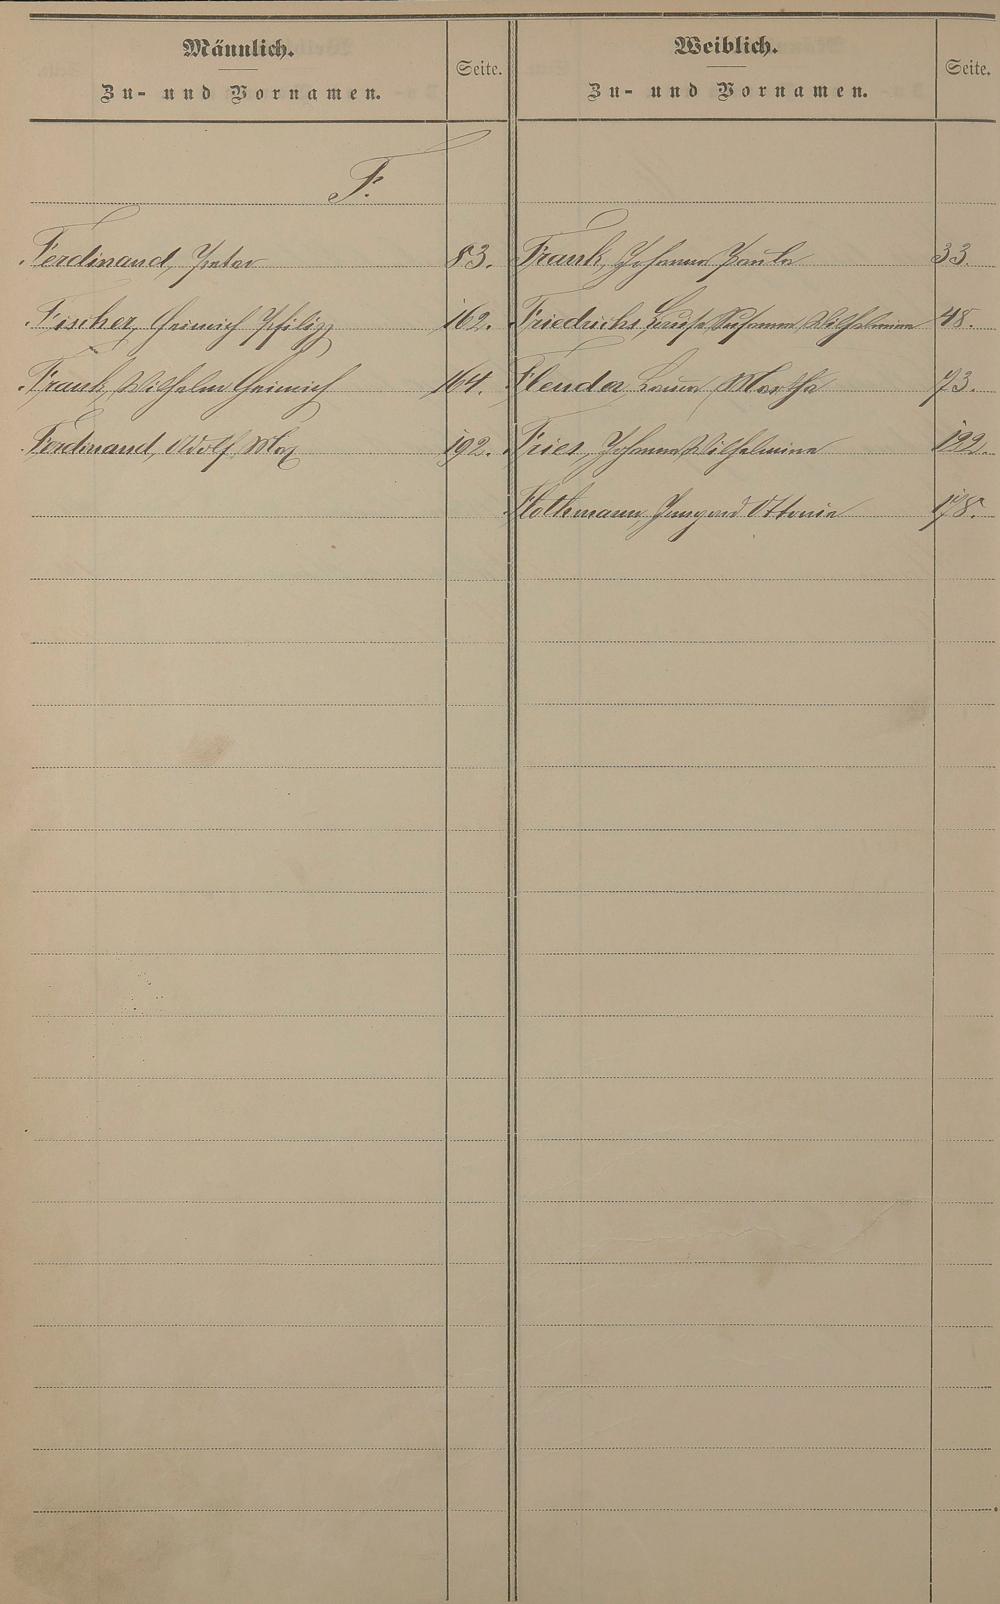 Männlich.
Zu- und Vornamen.
Seite.
F.
Ferdinand, Peter 83.
Fischer, Heinrich Philipp 162.
Frank, Wilhelm Heinrich 164.
Ferdinand, Adolf Max 192.
Weiblich.
Zu- und Vornamen.
Seite.
Frank, Johanna Paula 33.
Friedrichs, Louise Susanna Wilhelmine 48.
Flender, Laura Martha 73.
Fries, Johanna Wilhelmine 122.
Flothmann, Irmgard Ottonie 178.